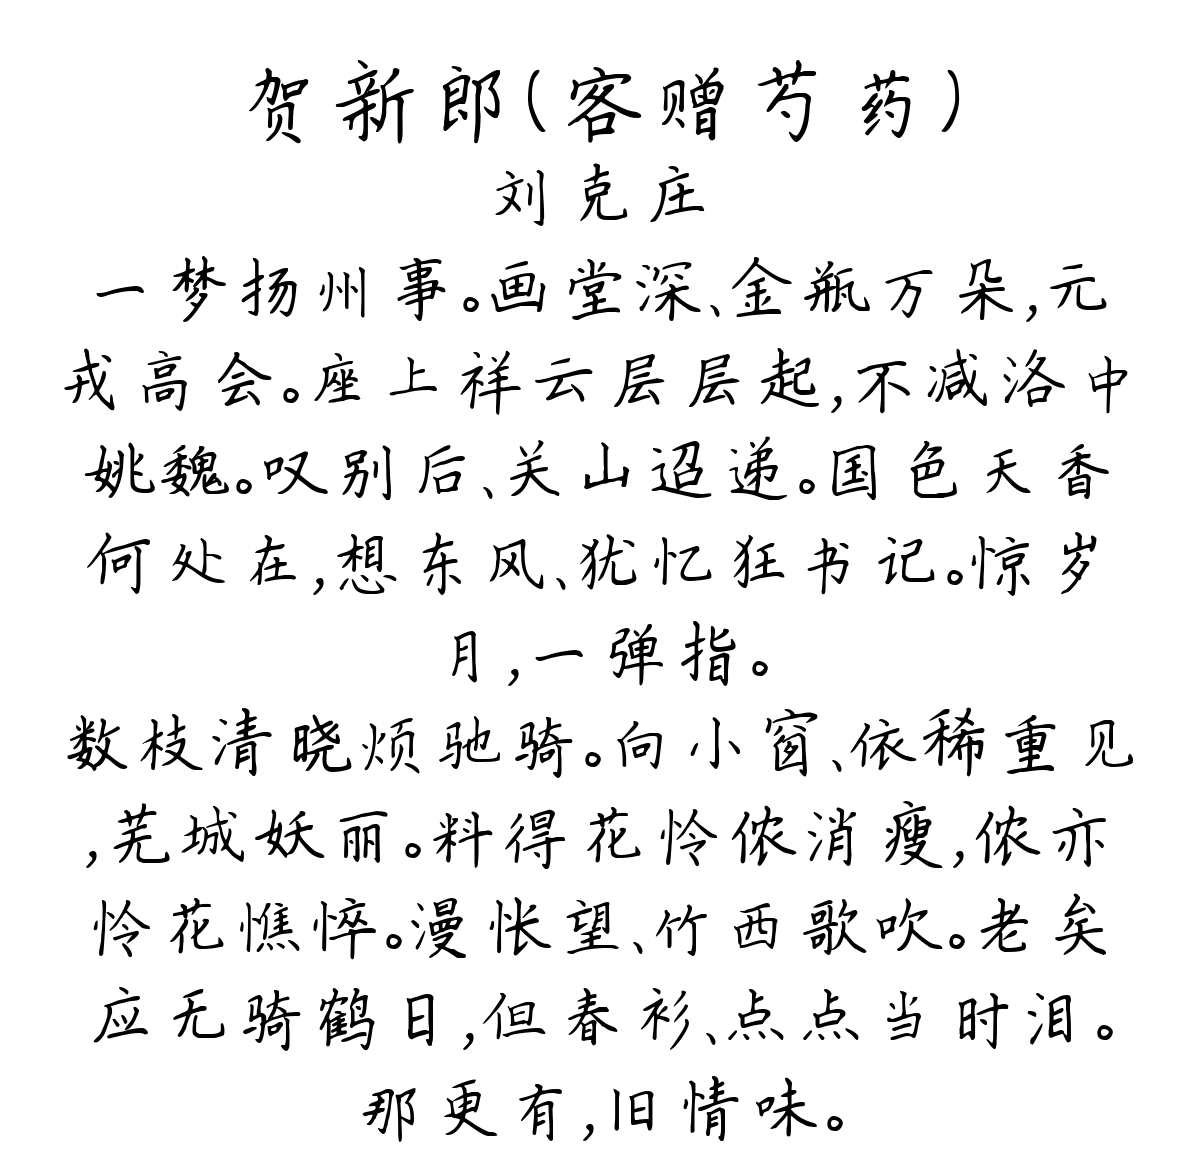 贺新郎(客赠芍药)
刘克庄
一梦扬州事。画堂深、金瓶万朵,元
戎高会。座上祥云层层起,不减洛中
姚魏。叹别后、关山迢递。国色天香
何处在,想东风、犹忆狂书记。惊岁
月,一弹指。
数枝清晓烦驰骑。向小窗、依稀重见
,芜城妖丽。料得花怜侬消瘦,侬亦
怜花憔悴。漫怅望、竹西歌吹。老矣
应无骑鹤日,但春衫、点点当时泪。
那更有,旧情味。